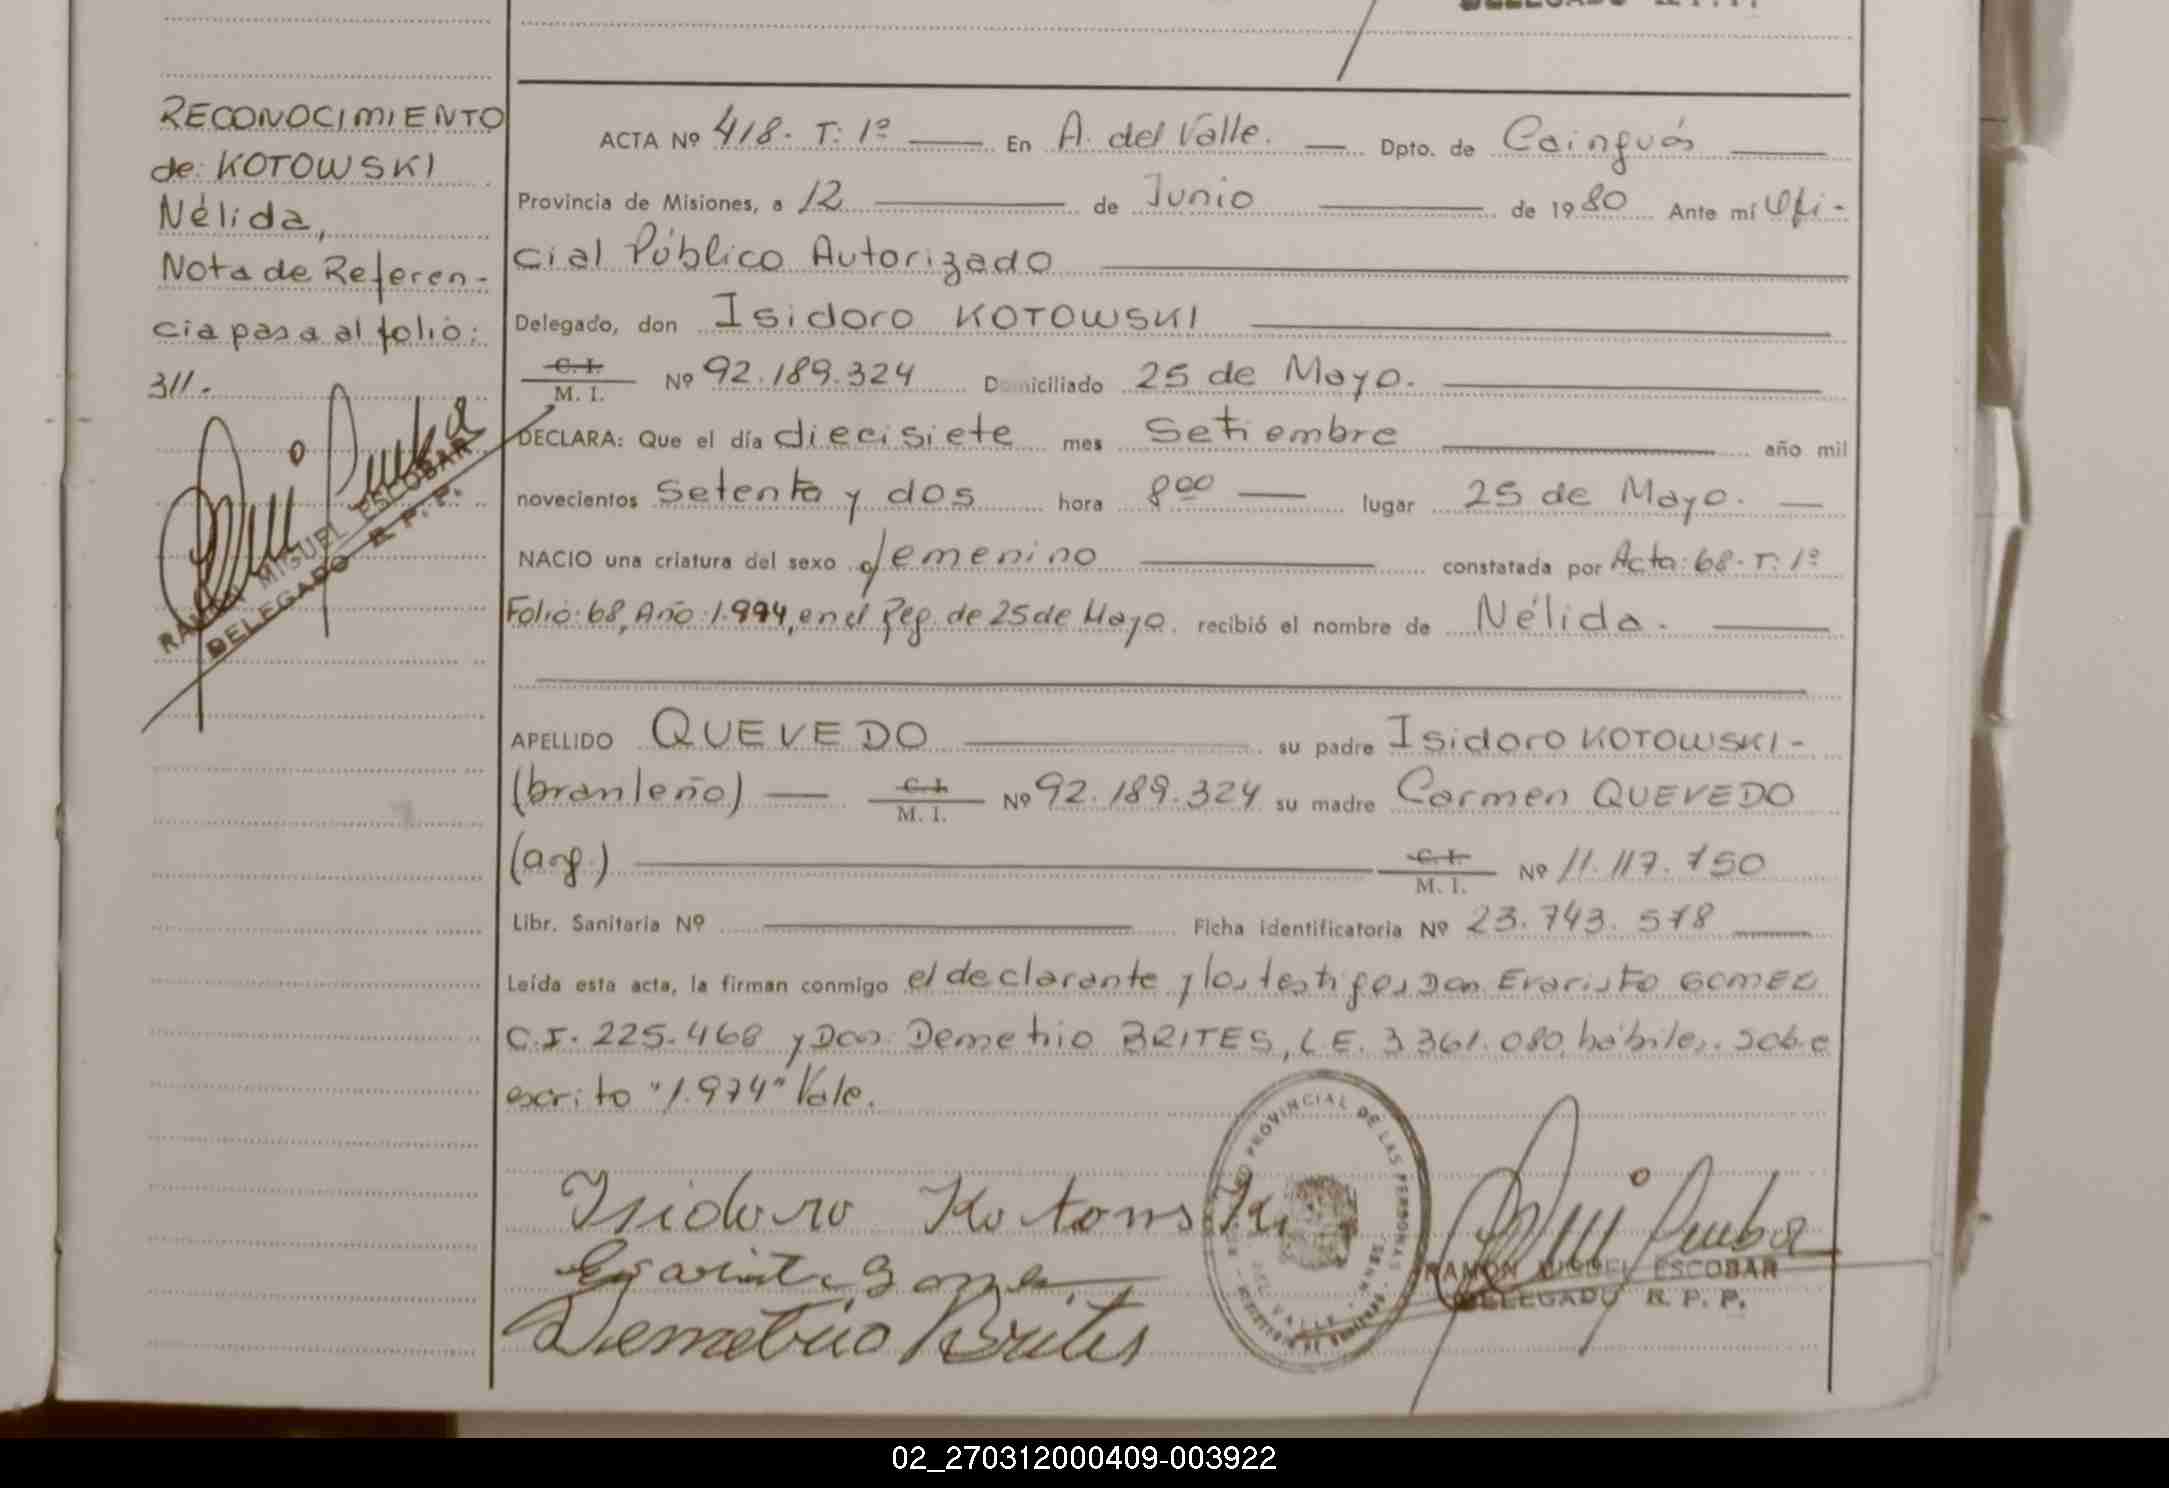 RECONOCIMIENTO
de: KOTOWSKI
Nélida,
Nota de Referen-
cia pasa al folio:
311.
RAMON MIGUEL ESCOBAR
DELEGADO R. P. P.
ACTA Nº 418. T: 1º En A. del Valle. Dpto. de Cainguás
Provincia de Misiones, a 12 de Junio de 1980 Ante mí Ofi-
cial Público Autorizado
Delegado, don Isidoro KOTOWSKI
C. I. M. I. Nº 92.189.324 Domiciliado 25 de Mayo.
DECLARA: Que el día diecisiete mes Setiembre año mil
novecientos setenta y dos hora 8 00 lugar 25 de Mayo.
NACIO una criatura del sexo femenino constatada por Acta: 68. T: 1º
Folio: 68, Año: 1.974, en el Reg. de 25 de Mayo. recibió el nombre de Nélida.
APELLIDO QUEVEDO su padre Isidoro KOTOWSKI-
(brasileño) C. I. M. I. Nº 92.189.324 su madre Carmen QUEVEDO
(arg.) C. I. M. I. Nº 11.117.750
Libr. Sanitaria Nº Ficha identificatoria Nº 23.743.578
Leída esta acta, la firman conmigo el declarante y los testigos Don Evaristo GOMEZ
C.I. 225.468 y Don Demetrio BRITES, L.E. 3 361.080, hábiles. Sobre
escrito "1.974" Vale.
Isidoro Kotowski
Evaristo Gomez
Demetrio Brites
PROVINCIAL DE LAS PERSONAS
DEL VALLE
RAMON MIGUEL ESCOBAR
DELEGADO R. P. P.
02_270312000409-003922